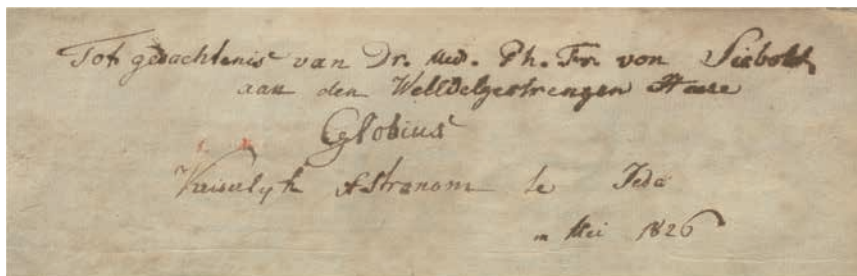 Tot gedachtenis van Dr. Med. Ph. Fr. von Siebold
aan den WelEdelgestrengen Heere
Globius
Kaiselyk Astronom te Jedo
in Mei 1826